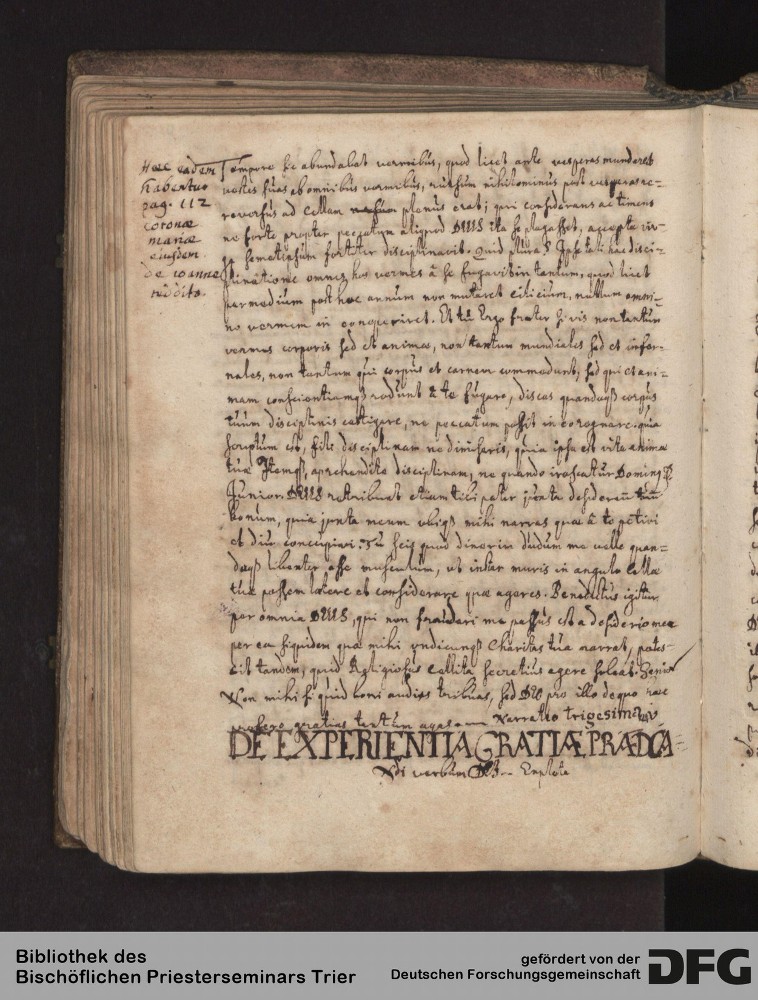 Haec eadem
habentur
pag. 112
coronae
mariae
eiusdem
de ioanne
rudito.
Tempore se abundabat vermibus, quod licet ante vesperas mundaret
vestes suas ab omnibus vermibus, rursum nihilominus post vesperas re=
reversus ad cellam plenus erat; qui considerans ac timens
ne forte propter peccatum aliquod DEUS ita se plagasset, accepta vir=
ga semetipsum fortiter disciplinavit. Quid plura? Ipse tali hac disci=
plinatione omnes hos vermes à se fugavit in tantum, quod licet
per medium post hoc annum non mutaret cilicium, nullum omni=
no vermem in eo reperiret. Et tu Ergo frater si vis non tantum
vermes corporis sed et animae, non tantum mundiales sed et infer=
nales, non tantum qui corpus et carnem commodunt, sed qui et ani=
mam conscientiamq3 rodunt à te fugare, discas quandoq3 corpus
tuum disciplinis castigare, ne peccatum possit in eo regnare. quia
scriptum est, fili disciplinam ne dimiseris, quia ipsa est vita animae
tuae Itemq3, aprehendite disciplinam, ne quando irascatur Dominus
Junior. DEUS retribuat etiam tibi pater juxta desiderium tuum
bonum, quia juxta meum ubiq3 mihi narras quae à te petivi
et diu concupivi. Tu scis quod dixerim dudum me velle quan=
doq3 libenter esse musculum, ut instar muris in angulo cellae
tuae possem latere et considerare quae ageres. Benedictus igitur
per omnia DEUS, qui non fraudari me passus est a desiderio meo
per ea siquidem quae mihi undicunq3 charitas tua narrat, pates=
cit tandem, quid Religiosus cellita secretius agere soleat. Senior
Non mihi si quid boni audis tribuas, sed DEO pro illo de quo
refero gratias tantum agas Narratio trigesima
DE EXPERIENTIA GRATIÆ PRÆDICA=
di verbum DEI
Bibliothek des
Bischöflichen Priesterseminars Trier
gefördert von der
Deutschen Forschungsgemeinschaft
DFG